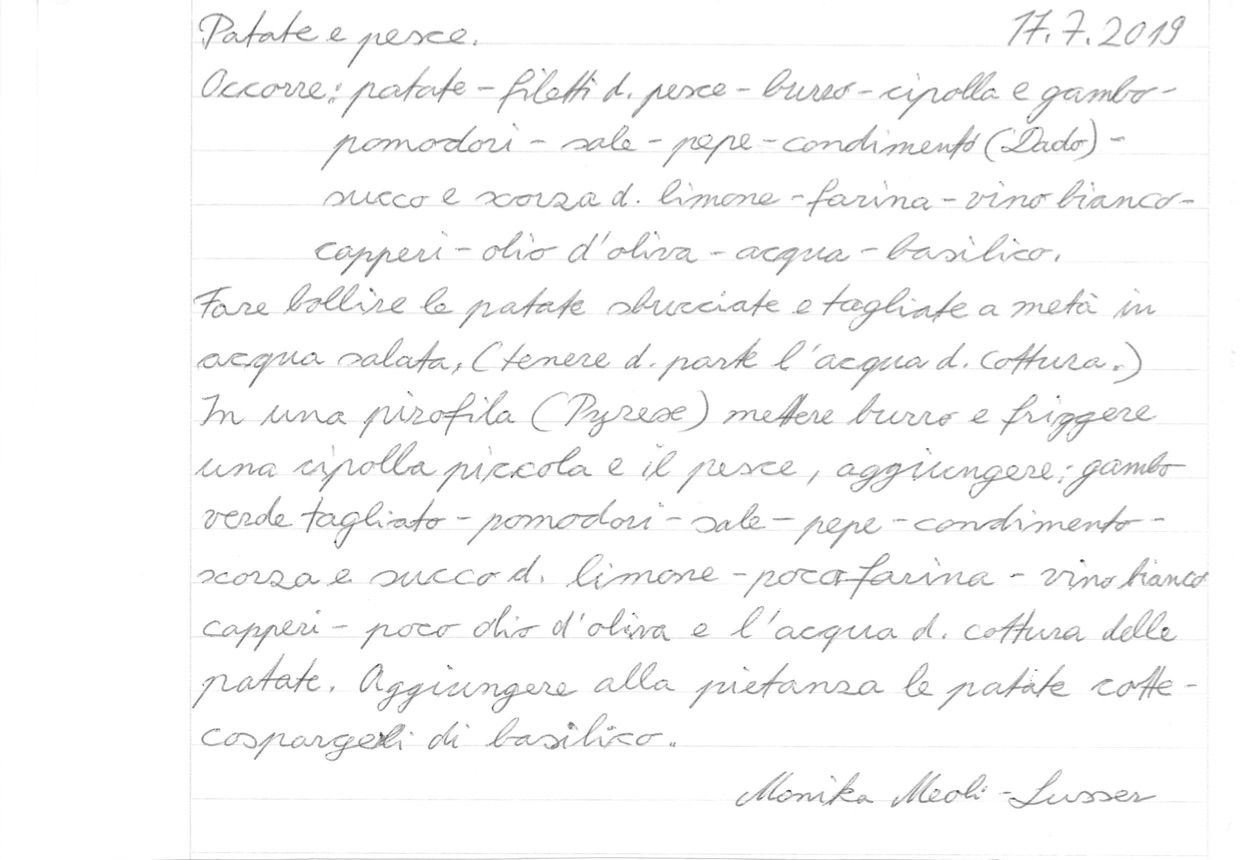 Patate e pesce. 17.7.2019
Occorre: patate - filetti d. pesce - burro - cipolla e gambo -
pomodori - sale - pepe - condimento (Dado) -
succo e scorza d. limone - farina - vino bianco -
capperi - olio d'oliva - acqua - basilico.
Fare bollire le patate sbucciate e tagliate a metà in
acqua salata, (tenere d. parte l'acqua d. cottura.)
In una pirofila (Pyrex) mettere burro e friggere
una cipolla piccola e il pesce, aggiungere: gambo
verde tagliato - pomodori - sale - pepe - condimento -
scorza e succo d. limone - poca farina - vino bianco
capperi - poco olio d'oliva e l'acqua d. cottura delle
patate. Aggiungere alla pietanza le patate cotte -
di basilico.
Monika Meoli - Lusser